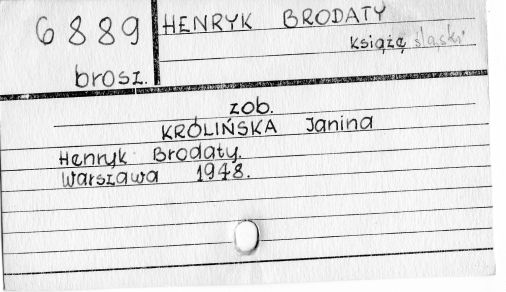 6889
brosz.
HENRYK BRODATY
książę śląski
zob.
KRÓLIŃSKA Janina
Henryk Brodaty.
Warszawa 1948.